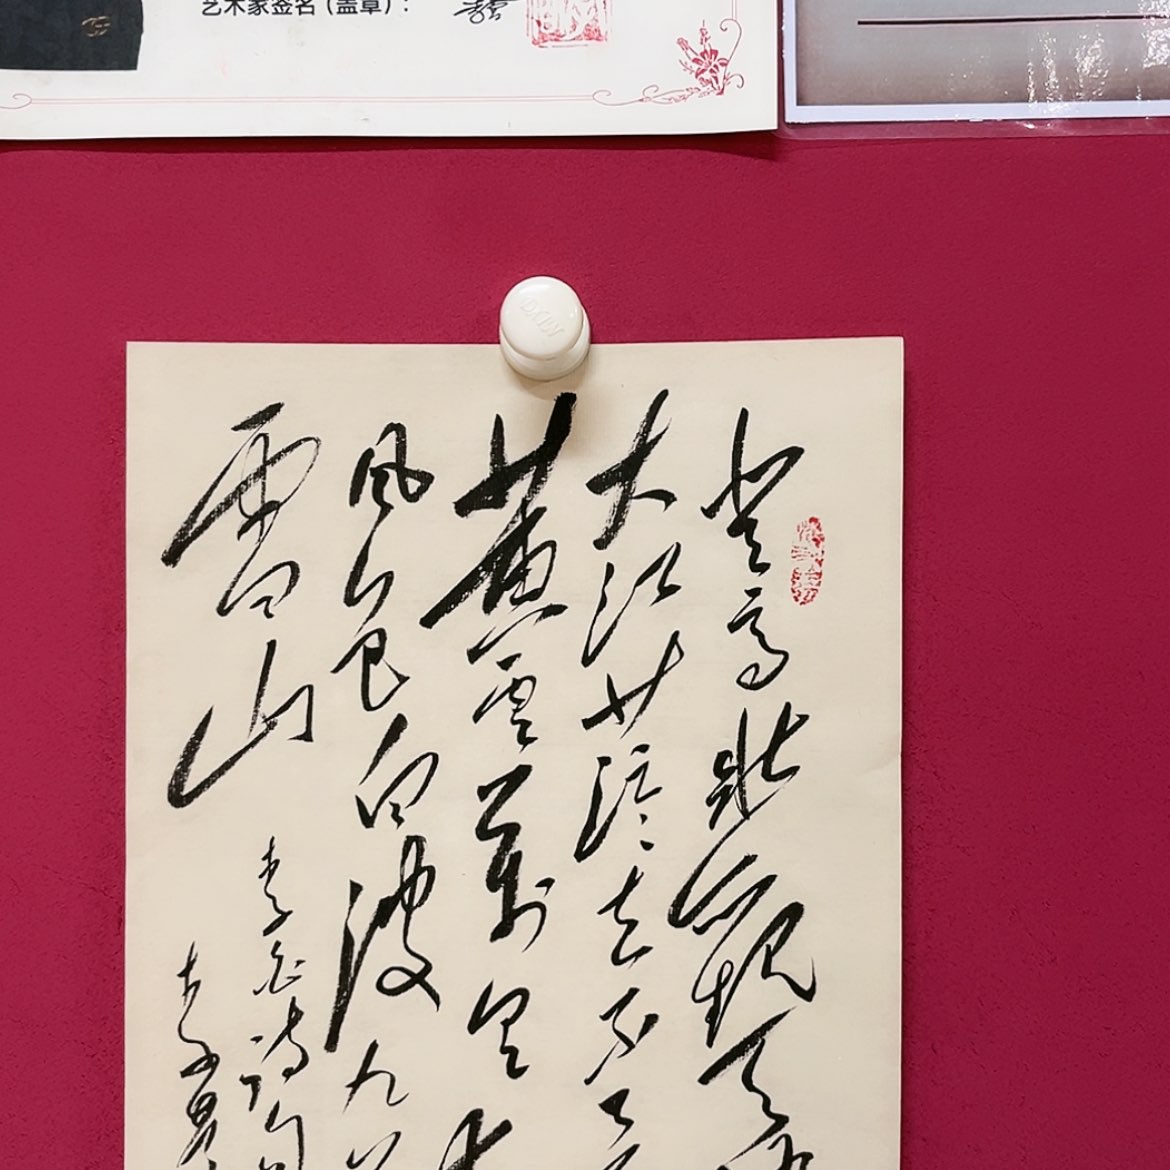 艺术家签名（盖章）：
登高壮观天
大江茫茫去不
黄云万里
风色白波九
雪山
李白诗句
李